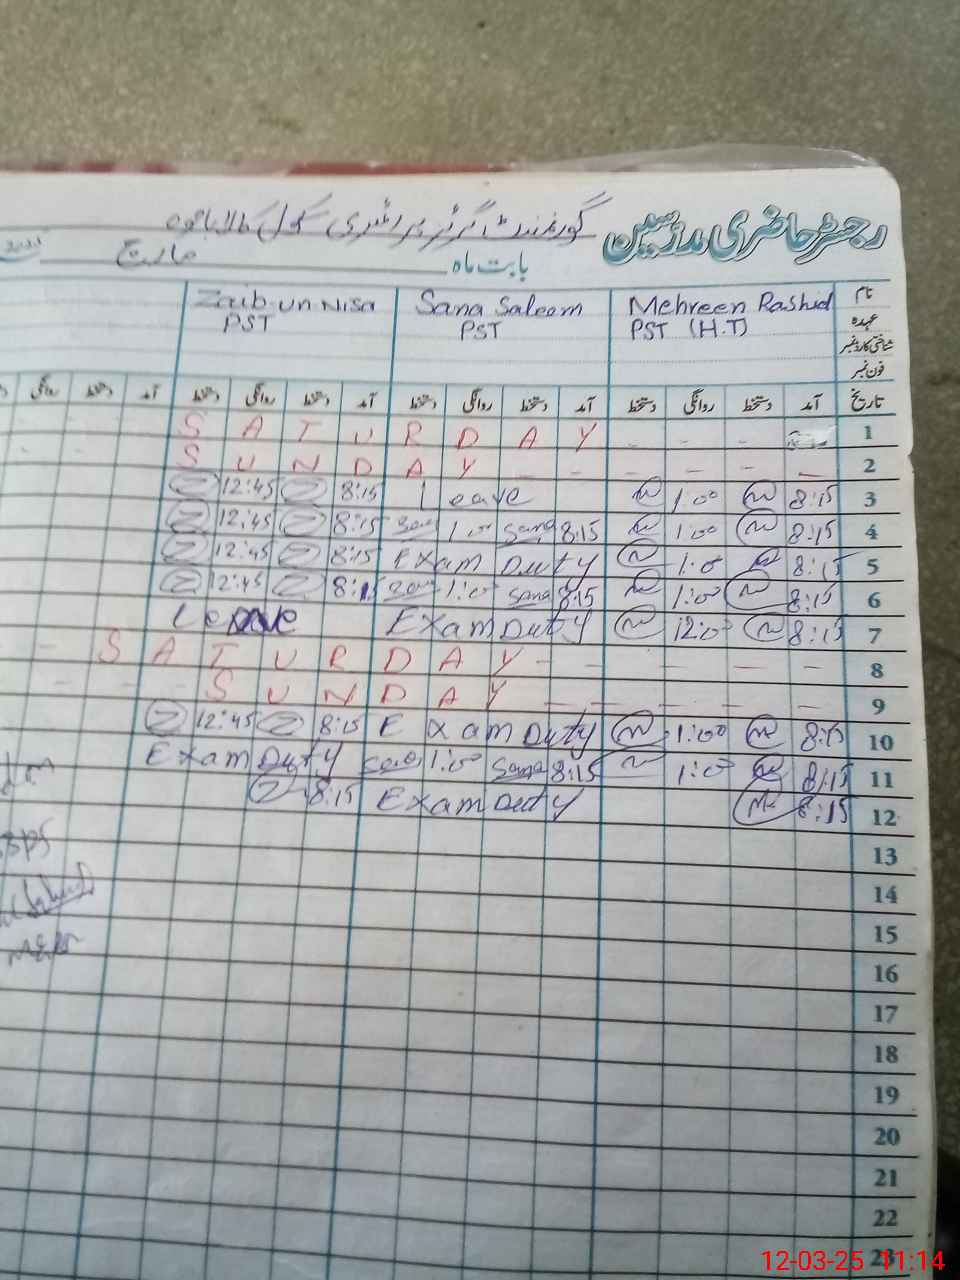 رجسٹر حاضری مدرسین گورنمنٹ گرلز پرائمری سکول
بابت ماہ مارچ
نام Mehreen Rashid Sana Saleem Zaib-un-Nisa
عہدہ PST (H.T) PST PST
شناختی کارڈ نمبر
فون نمبر
تاریخ آمد دستخط روانگی دستخط آمد دستخط روانگی دستخط آمد دستخط روانگی دستخط آمد دستخط روانگی
S A T U R D A Y - - - 1
S U N D A Y - - - - - - 2
12:45 8:15 Leave 1:00 8:15 3
12:45 8:15 Sana 1:00 Sana 8:15 1:00 8:15 4
12:45 8:15 Exam Duty 1:0 8:15 5
12:45 8:15 Sana 1:0 Sana 8:15 1:00 8:15 6
Leave Exam Duty 12:0 8:15 7
- - S A T U R D A Y - - - - - - 8
- - - S U N D A Y - - - - - - 9
12:45 8:15 Exam Duty 1:00 8:15 10
Exam Duty Sana 1:0 Sana 8:15 1:0 8:15 11
8:15 Exam Duty 8:15 12
13
14
15
16
17
18
19
20
21
22
23
12-03-25 11:14